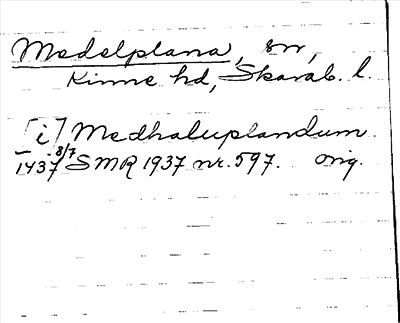 Medelplana, sn,
Kinne hd, Skarab. l.
[i] Medhaluplandum.
1437 8/7 SMR 1937 nr. 597. orig.